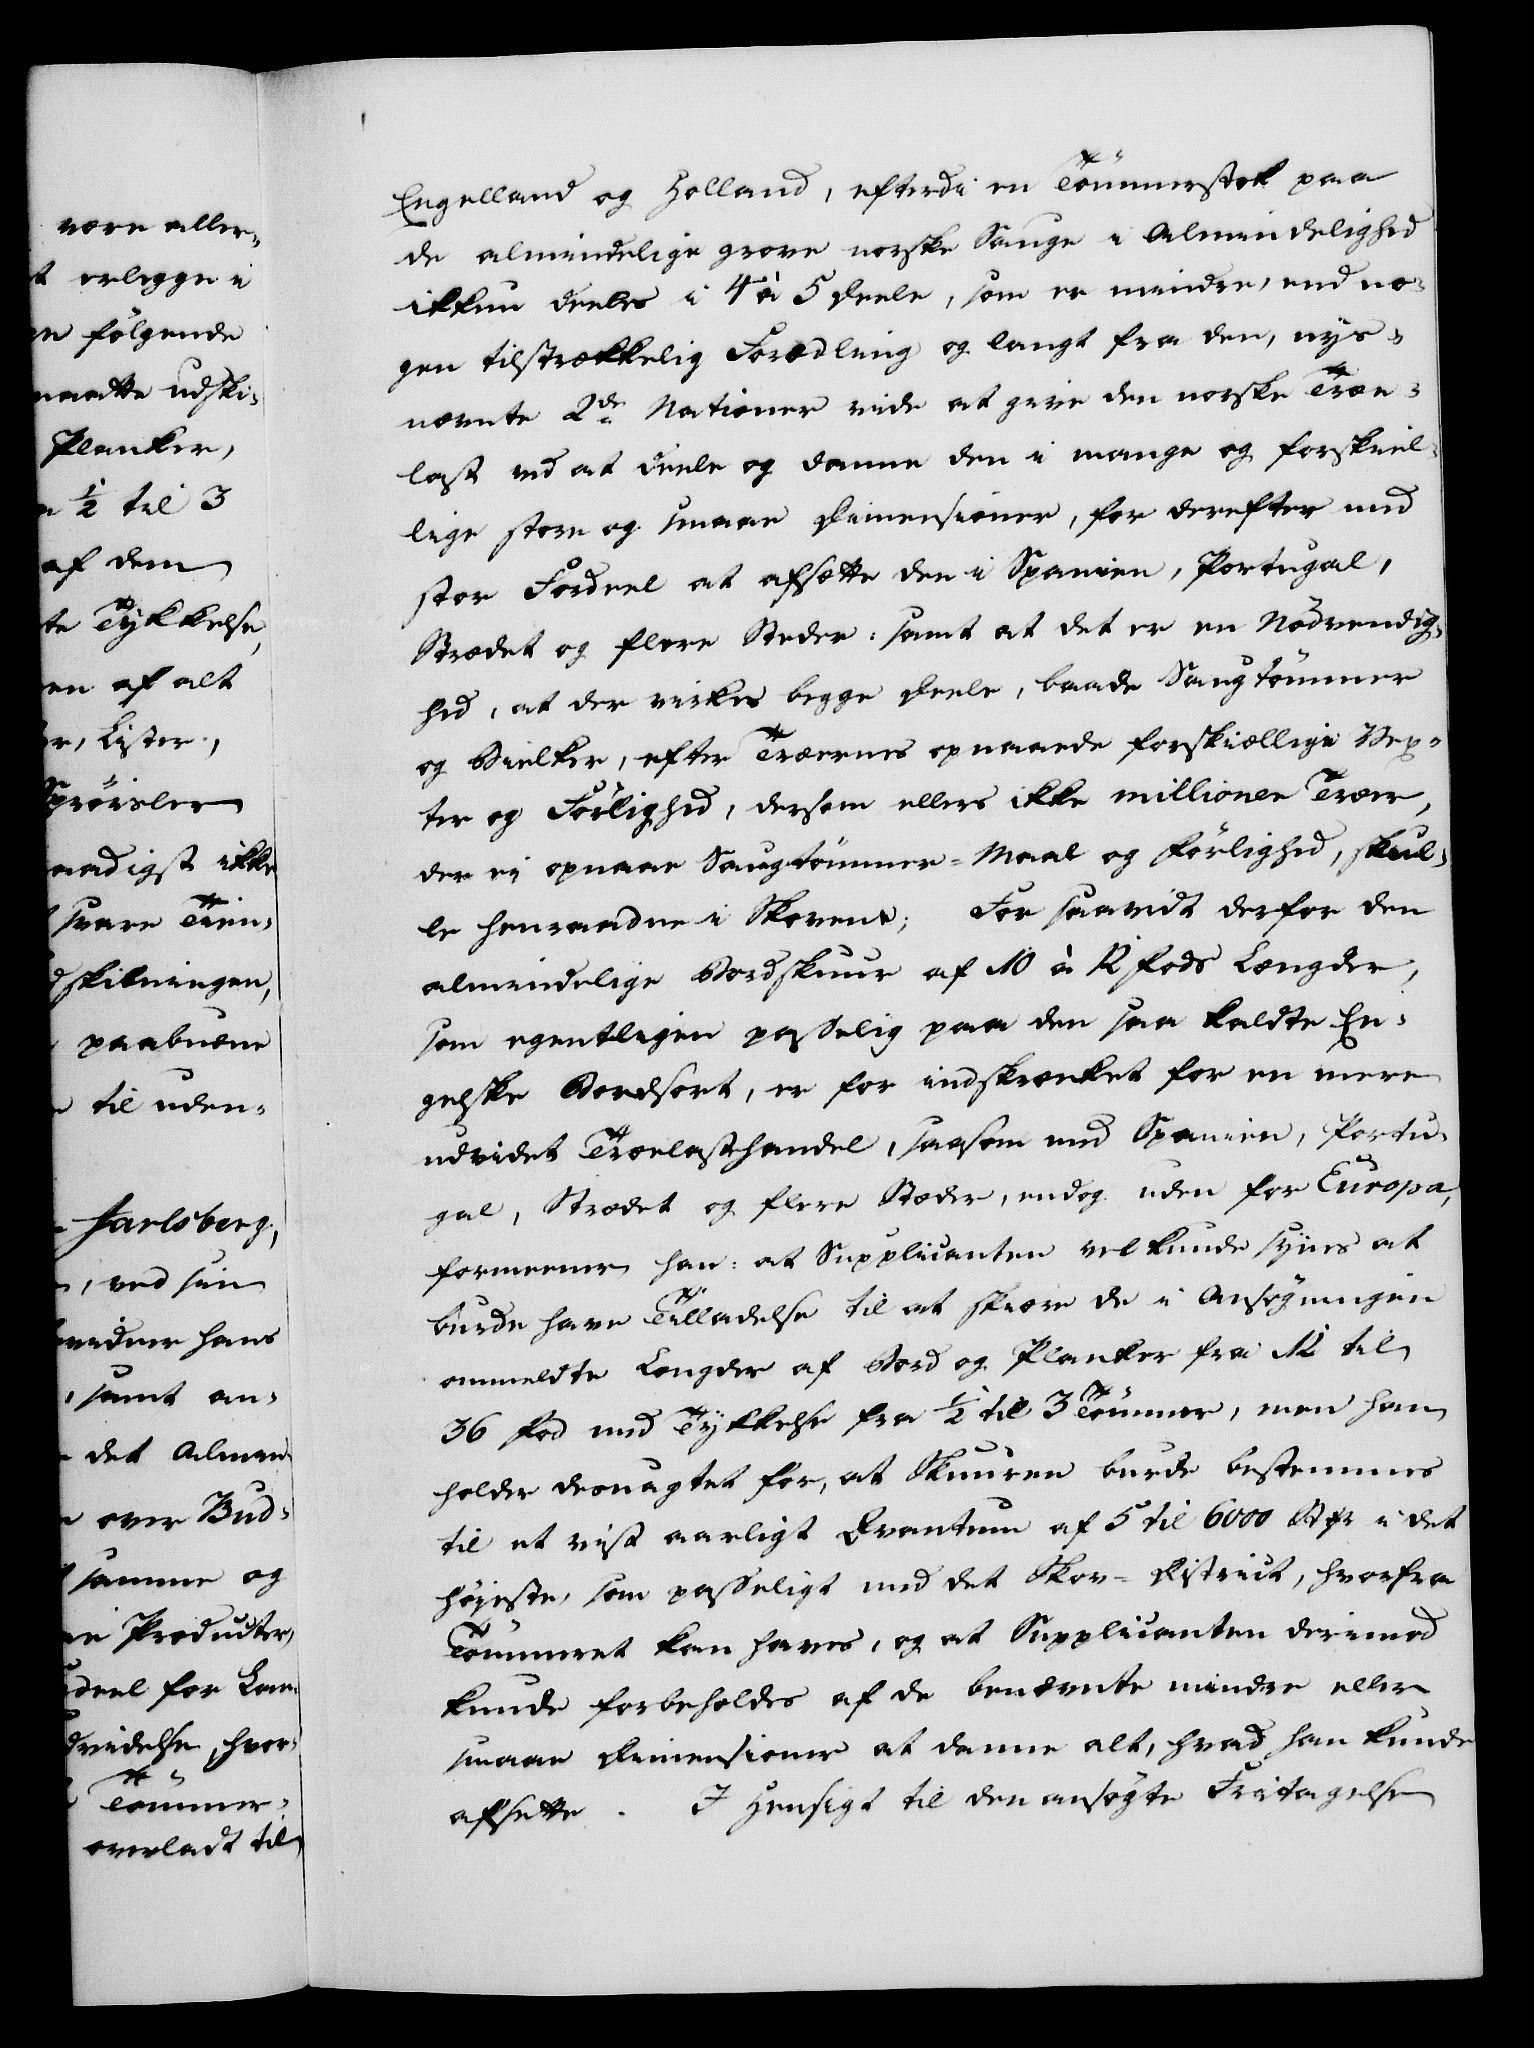 være aller-
t erlegge i
en følgende
maatte udski-
Planker,
a ½ til 3
af dem
te Tykkelse,
en af alt
r, Lister,
Sprøisler
aadigst ikke
svare Tien-
dskibningen,
paabudne
til uden-
Jarlsberg,
, ved sin
vidner hans
, samt an-
det Almin-
over Bud-
samme og
ne Producter,
deel for Lan-
dvidelse, hvor-
Tömmer-
overladt til
Engelland og Holland, efterdi en Tömmerstok paa
de almindelige grove norske Sauge i Almindelighed
ikkun deeles i 4 à 5 Deele, som er mindre, end no-
gen tilstrækkelig Forædling og langt fra den, nys-
nævnte 2de Nationer vide at give den norske Træe-
last ved at deele og danne den i mange og forskiel-
lige store og smaae Dimensioner, for derefter med
stor Fordeel at afsætte den i Spanien, Portugal,
Strædet og flere Steder: samt at det er en Nödvendig-
hed, at der virkes begge Deele, baade Saugtömmer
og Bielker, efter Træernes opnaaede forskiællige Vex-
ter og Förlighed, dersom ellers ikke millioner Træer,
der ei opnaae Saugtömmer-Maal og Förlighed, skul-
le henraadne i Skovene; For saavidt derfor den
almindelige Bordskuur af 10 à 12 Fods Længder,
som egentligen passelig paa den saa kaldte En-
gelske Bordsort, er for indskrænket for en mere
udvidet Trælasthandel, saasom med Spanien, Portu-
gal, Strædet og flere Stæder, endog uden for Europa,
formeener han: at Supplicanten vel kunde synes at
burde have Tilladelse til at skiære de i Ansögningen
ommeldte Længder af Bord og Planker fra 12 til
36 Fod med Tykkelse fra ½ til 3 Tommer, men han
holder desuagtet for, at Skuuren burde bestemmes
til et vist aarligt Qvantum af 5 til 6000 i det
höjeste, som passeligt med det Skov-District, hvorfra
Tömmeret kan haves, og at Supplicanten derimod
kunde forbeholdes af de benævnte mindre eller
smaae Dimensioner at danne alt, hvad han kunde
afsætte. I Hensigt til den ansögte Fritagelse